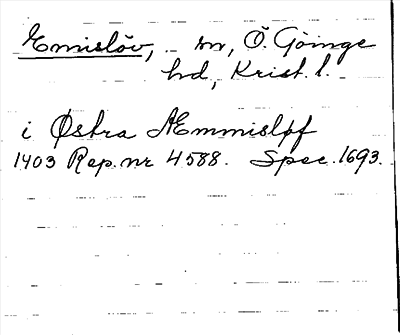 Emislöv, sn, Ö. Göinge
hd, Krist. l.
i Østra Æmmisløf
1403 Rep. nr 4588. Spec. 1693.